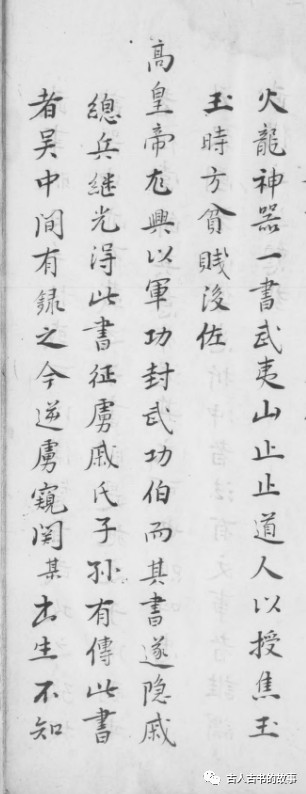 火龍神器一書武夷山止止道人以授焦玉
玉時方貧賤後佐
高皇帝龙興以軍功封武功伯而其書遂隐戚
總兵継光淂此書征虜戚氏子孙有傳此書
者吴中间有録之今逆虜窺関某书生不知
古人古书的故事